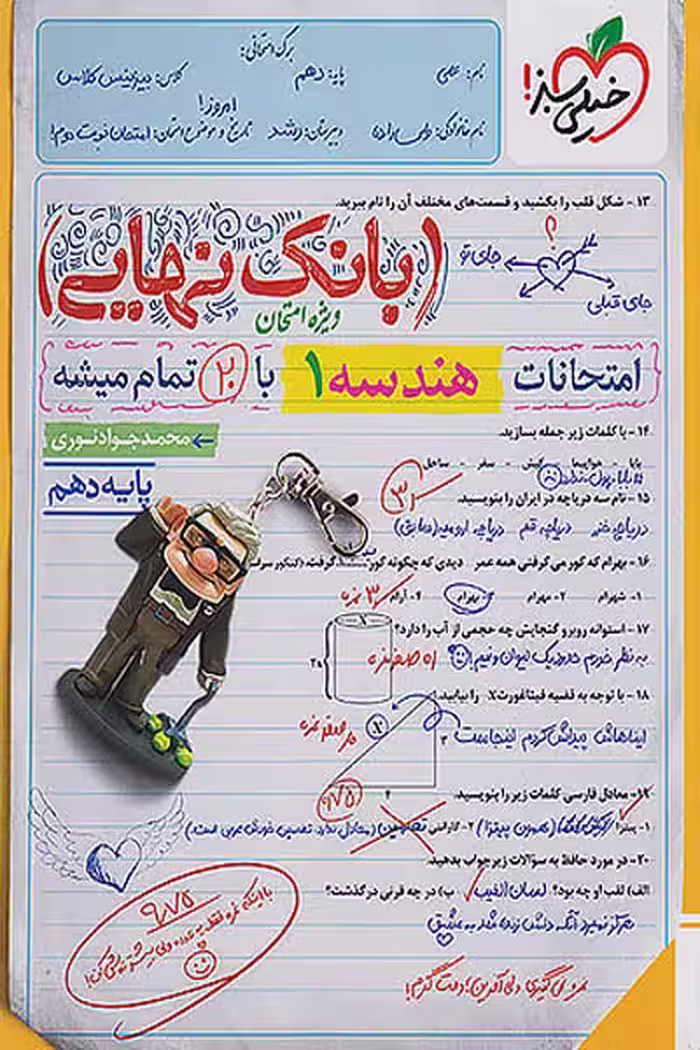 برگ امتحانی:
نام: علی
پایه: دهم
کلاس: بیزینس کلاس
امروز!
نام خانوادگی:
دبیرستان: رشد
تاریخ و موضوع امتحان: امتحان نوبت دوم!
خیلی سبز!
۱۳ - شکل قلب را بکشید و قسمت‌های مختلف آن را نام ببرید.
؟
جای تو
جای قبلی
(بانک نهایی)
ویژه امتحان
امتحانات هندسه ۱ با ۲۰ تمام میشه
محمدجواد نوری
پایه دهم
۱۴ - با کلمات زیر جمله بسازید.
بابا - هواپیما - کیش - سفر - ساحل
۱۵ - نام سه دریاچه در ایران را بنویسید.
دریاچه خزر دریاچه قم دریاچه ارومیه (سابق)
۱۶ - بهرام که گور می‌گرفتی همه عمر دیدی که چگونه گور ... گرفت.
۱- شهرام ۲- مهرام ۳- بهرام ۴- آرام
۱۷ - استوانه روبرو گنجایش چه حجمی از آب را دارد؟
۲۰
به نظر خودم حدود یک لیوان و نیم!
۱۸ - با توجه به قضیه فیثاغورث X را بیابید.
X
۳
۴
ایناهاش پیداش کردم اینجاست
۱۹ - معادل فارسی کلمات زیر را بنویسید.
۱- پیتزا
(همون پیتزا) ۲- گارانتی تضمین (معادل نداره. تضمین خودش عربی است.)
۲۰ - در مورد حافظ به سؤالات زیر جواب بدهید.
الف) لقب او چه بود؟ لسان الغیب ب) در چه قرنی درگذشت؟
هرگز نمیرد آنکه دلش زنده شد به عشق
۹/۷۵